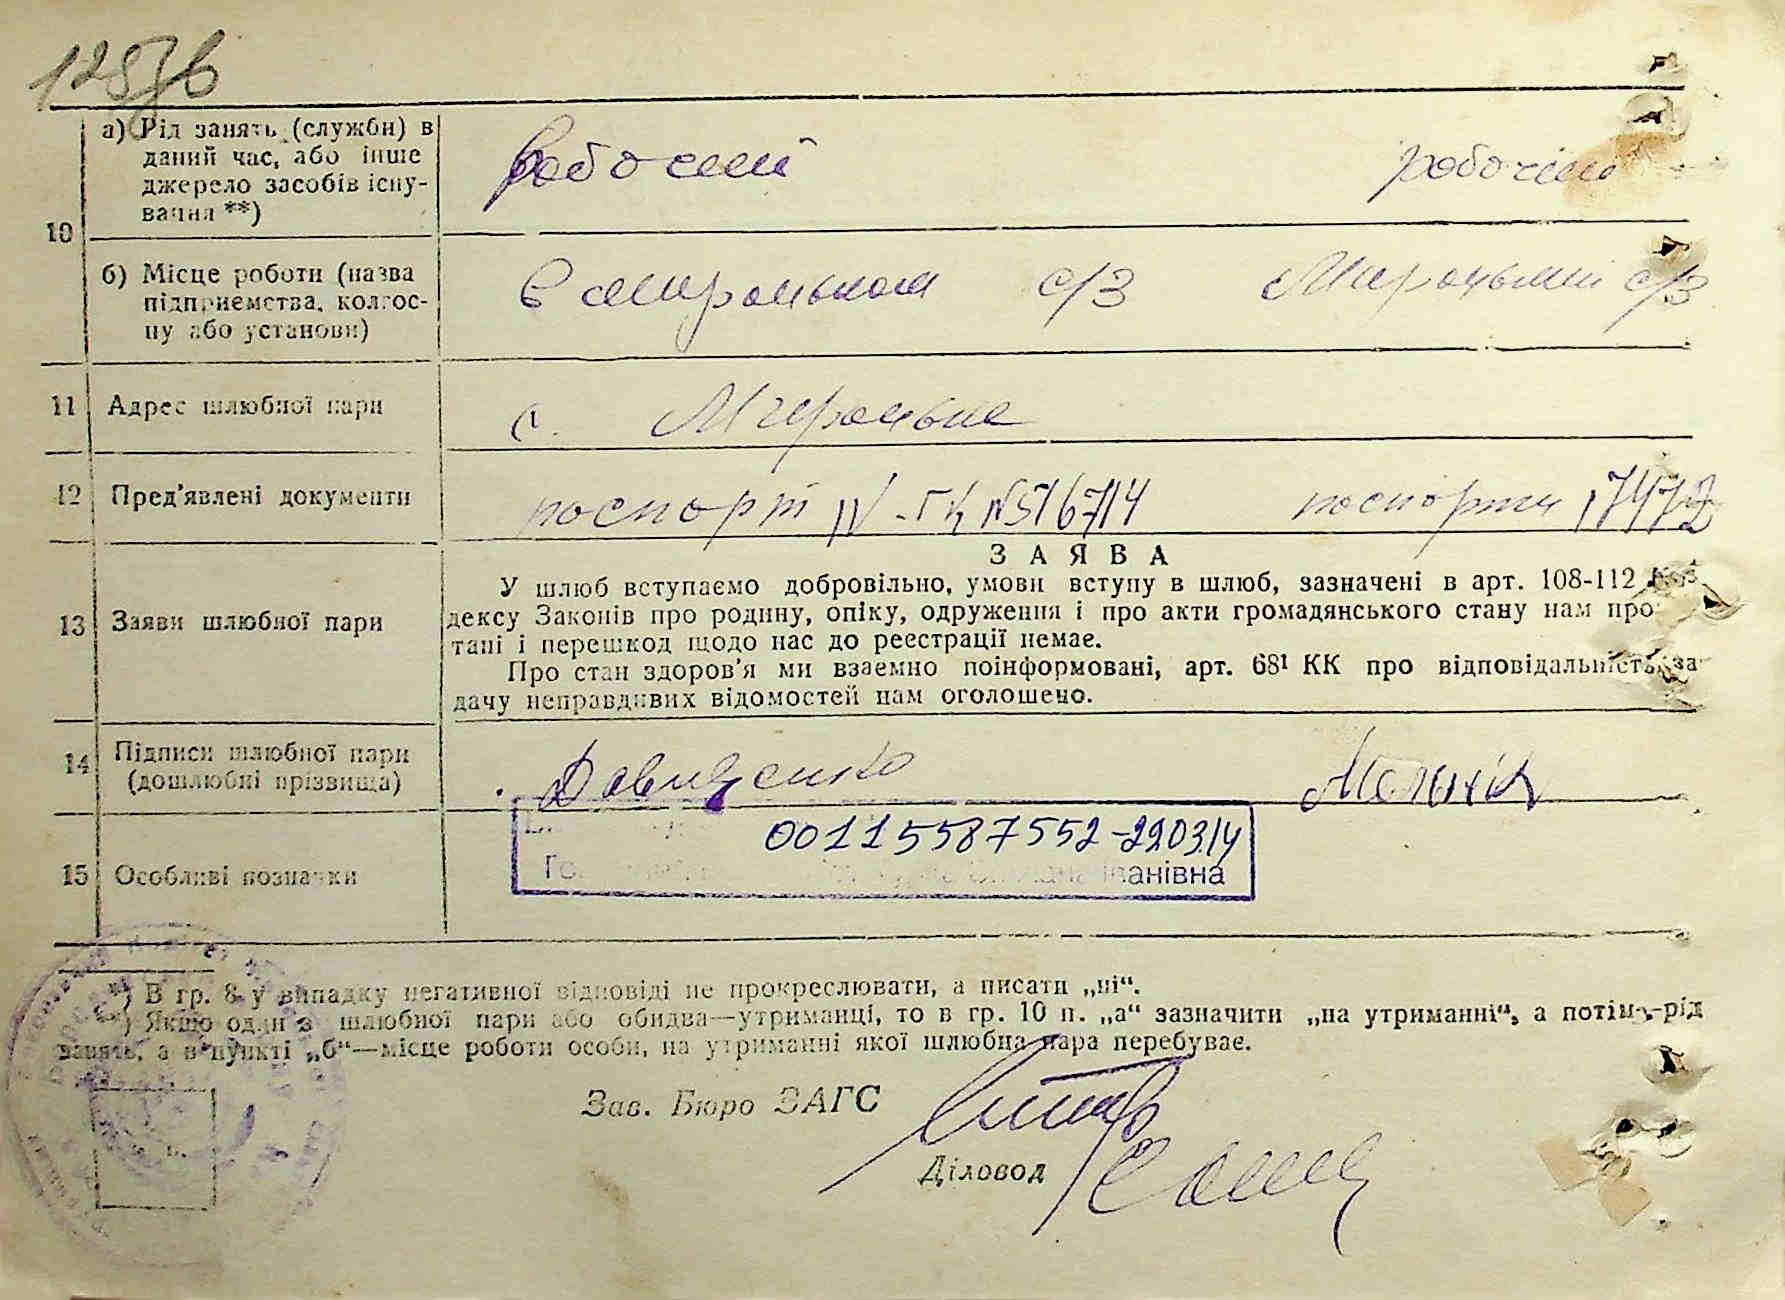 128зв
а) Рід занять (служби) в
даний час, або інше
джерело засобів існу-
вання **)
рабочий рабочий
10
б) Місце роботи (назва
підприємства, колгос-
пу або установи)
с/з с/з
11 Адрес шлюбної пари
с. Мироцьке
12 Пред'явлені документи
паспорт IV-ГК №516714 паспорт
З А Я В А
13 Заяви шлюбної пари
У шлюб вступаємо добровільно, умови вступу в шлюб, зазначені в арт. 108-112 Ко-
дексу Законів про родину, опіку, одруження і про акти громадянського стану нам про
тані і перешкод щодо нас до реєстрації немає.
Про стан здоров'я ми взаємно поінформовані, арт. 68¹ КК про відповідальність за
дачу неправдивих відомостей нам оголошено.
14 Підписи шлюбної пари
(дошлюбні прізвища)
Давиденко Мельник
00115587552-22.03.14
Іванівна
15 Особливі познаки
*) В гр. 8 у випадку негативної відповіді не прокреслювати, а писати „ні“.
**) Якщо один з шлюбної пари або обидва—утриманці, то в гр. 10 п. „а“ зазначити „на утриманні“, а потім-рід
занять, а в пункті „б“—місце роботи особи, на утриманні якої шлюбна пара перебуває.
Зав. Бюро ЗАГС
Діловод